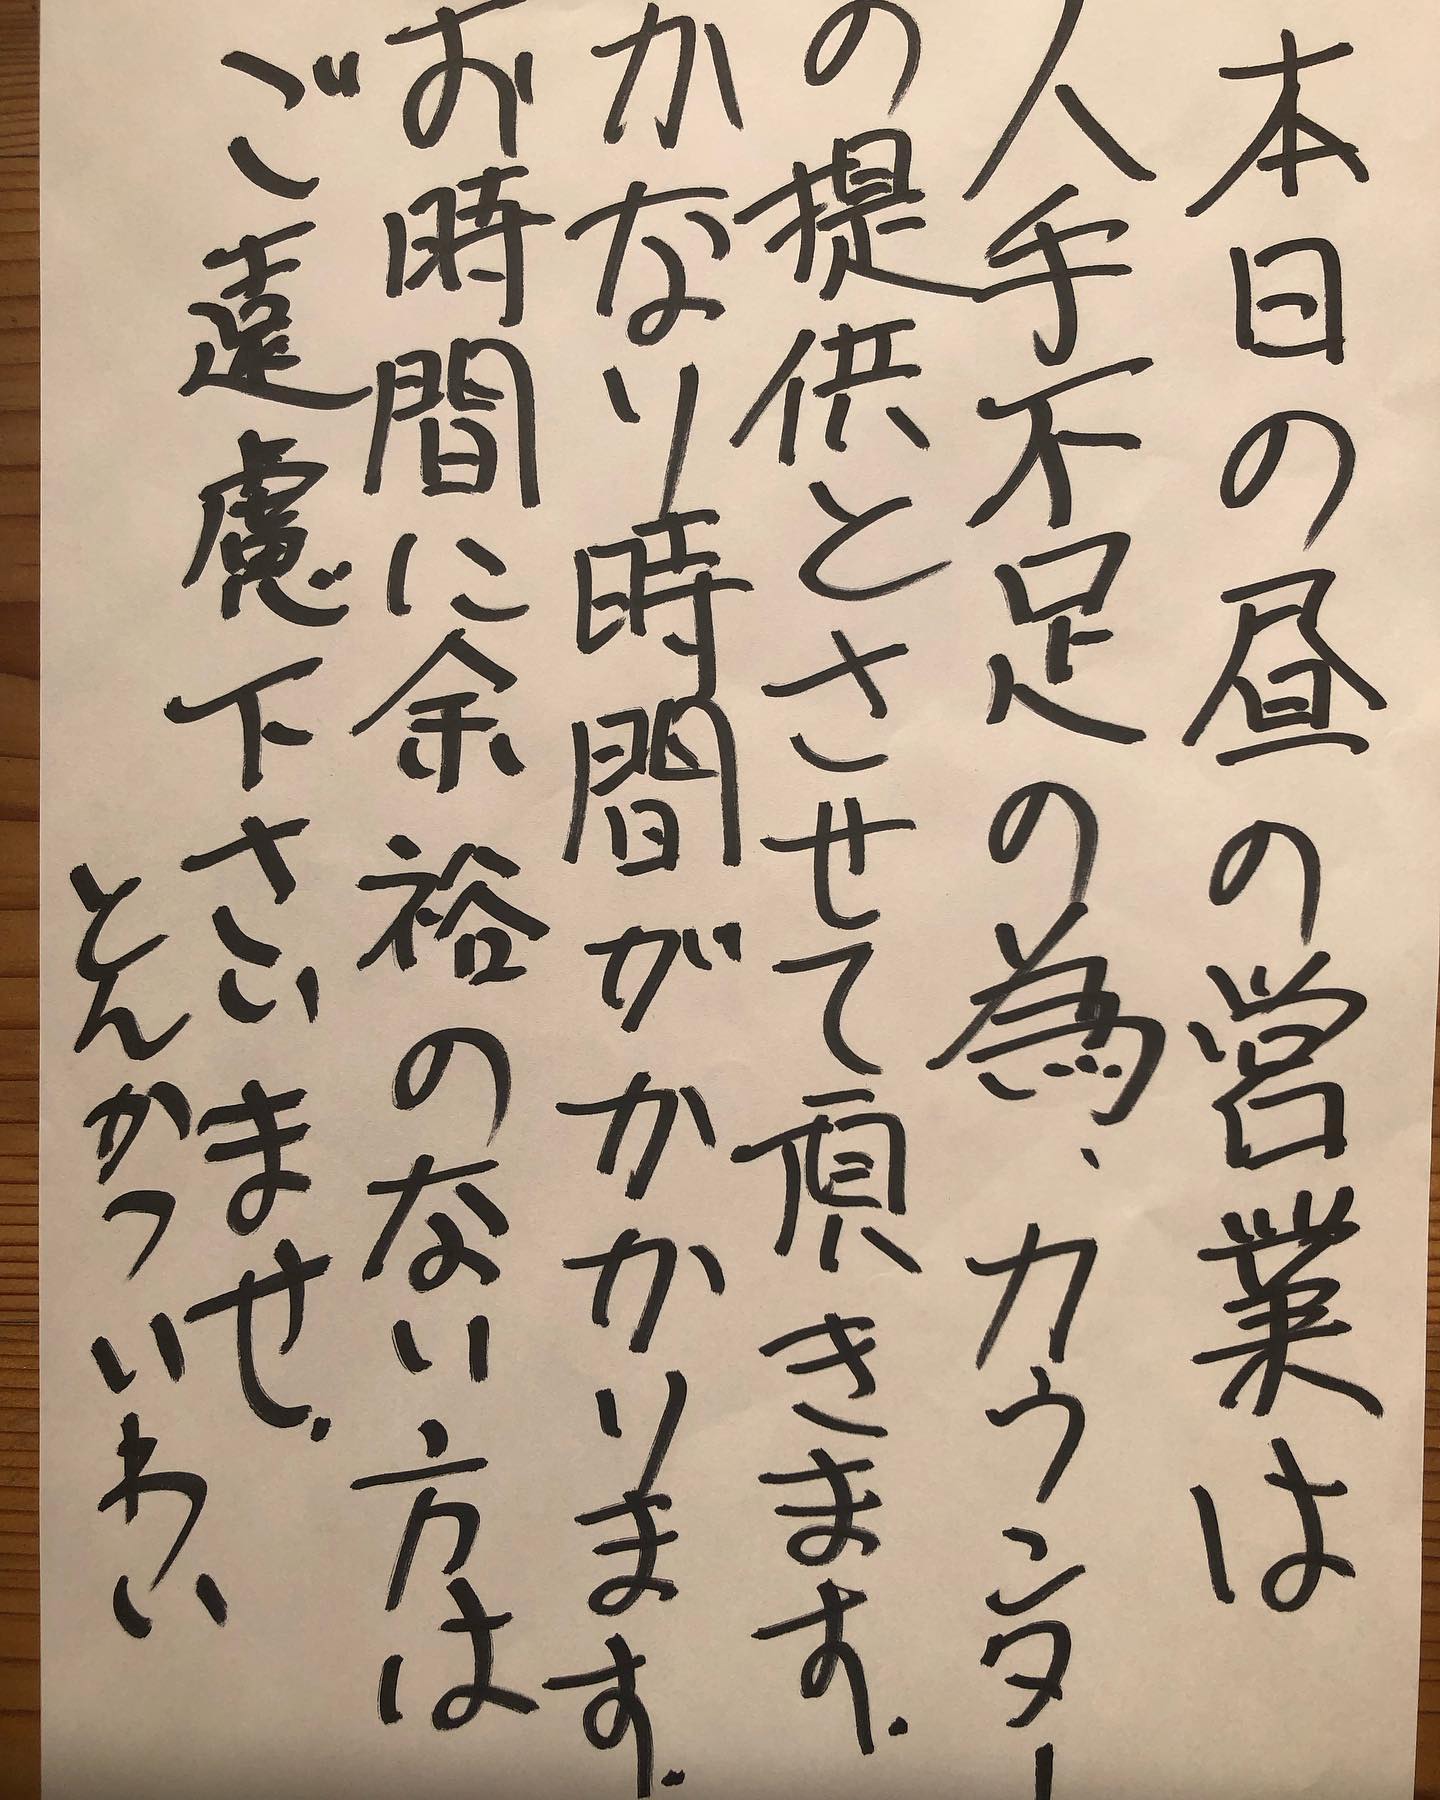 本日の昼の営業は
人手不足の為、カウンター
の提供とさせて頂きます.
かなり時間がかかります.
お時間に余裕のない方は
ご遠慮下さいませ.
とんかついわい